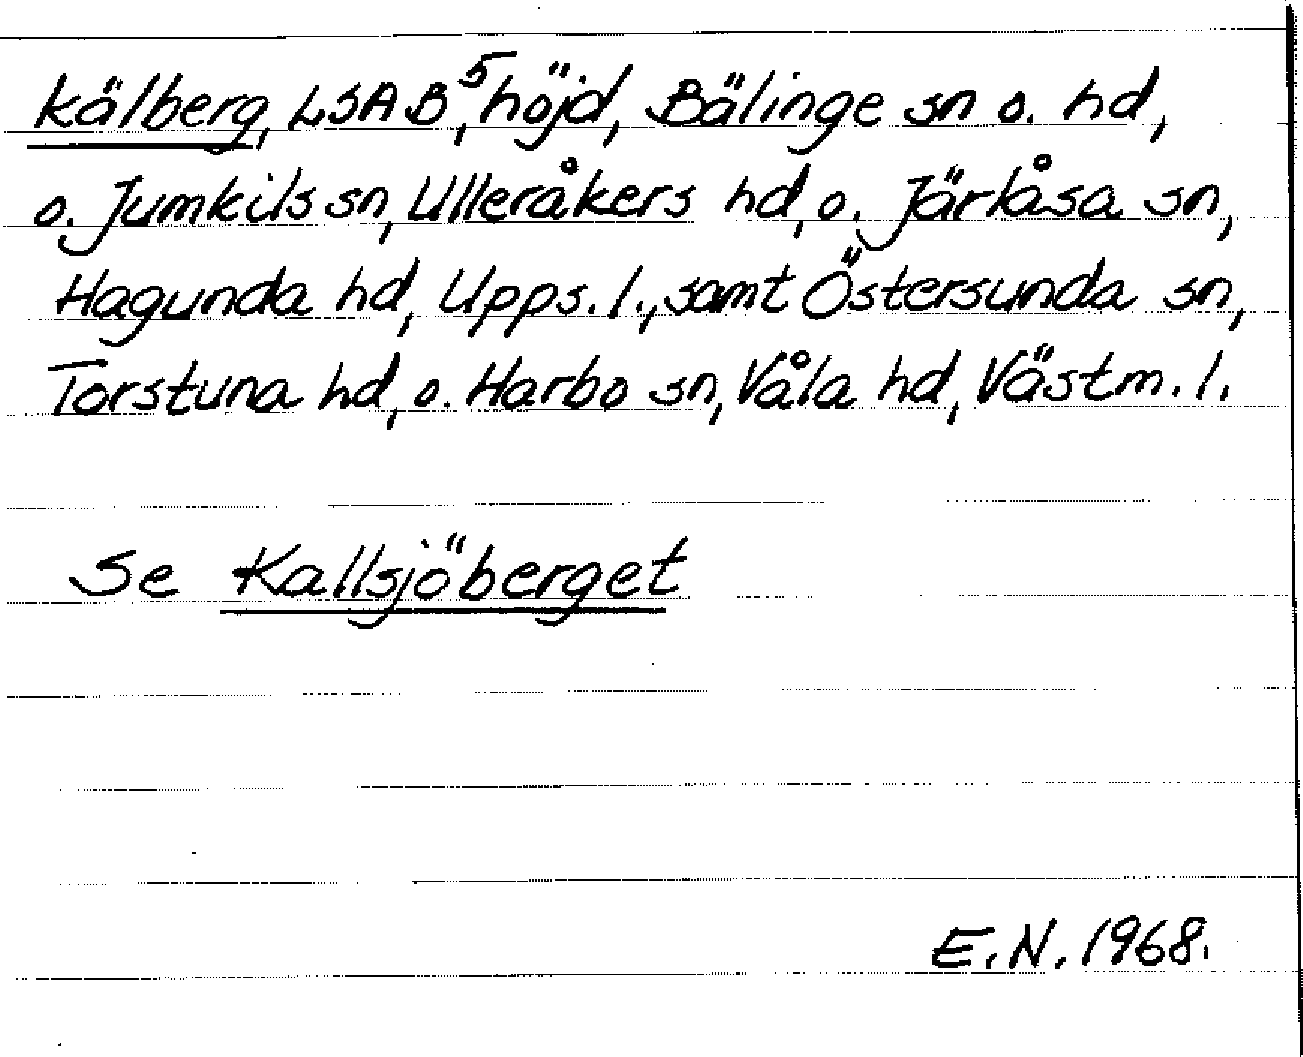 Kälberg, LSA B⁵, höjd, Bälinge sn o. hd,
o. Jumkils sn, Ulleråkers hd, o. Järlåsa sn,
Hagunda hd, Upps. l., samt Östersunda sn,
Torstuna hd, o. Harbo sn, Våla hd, Västm. l.
Se Kallsjöberget
E.N. 1968.